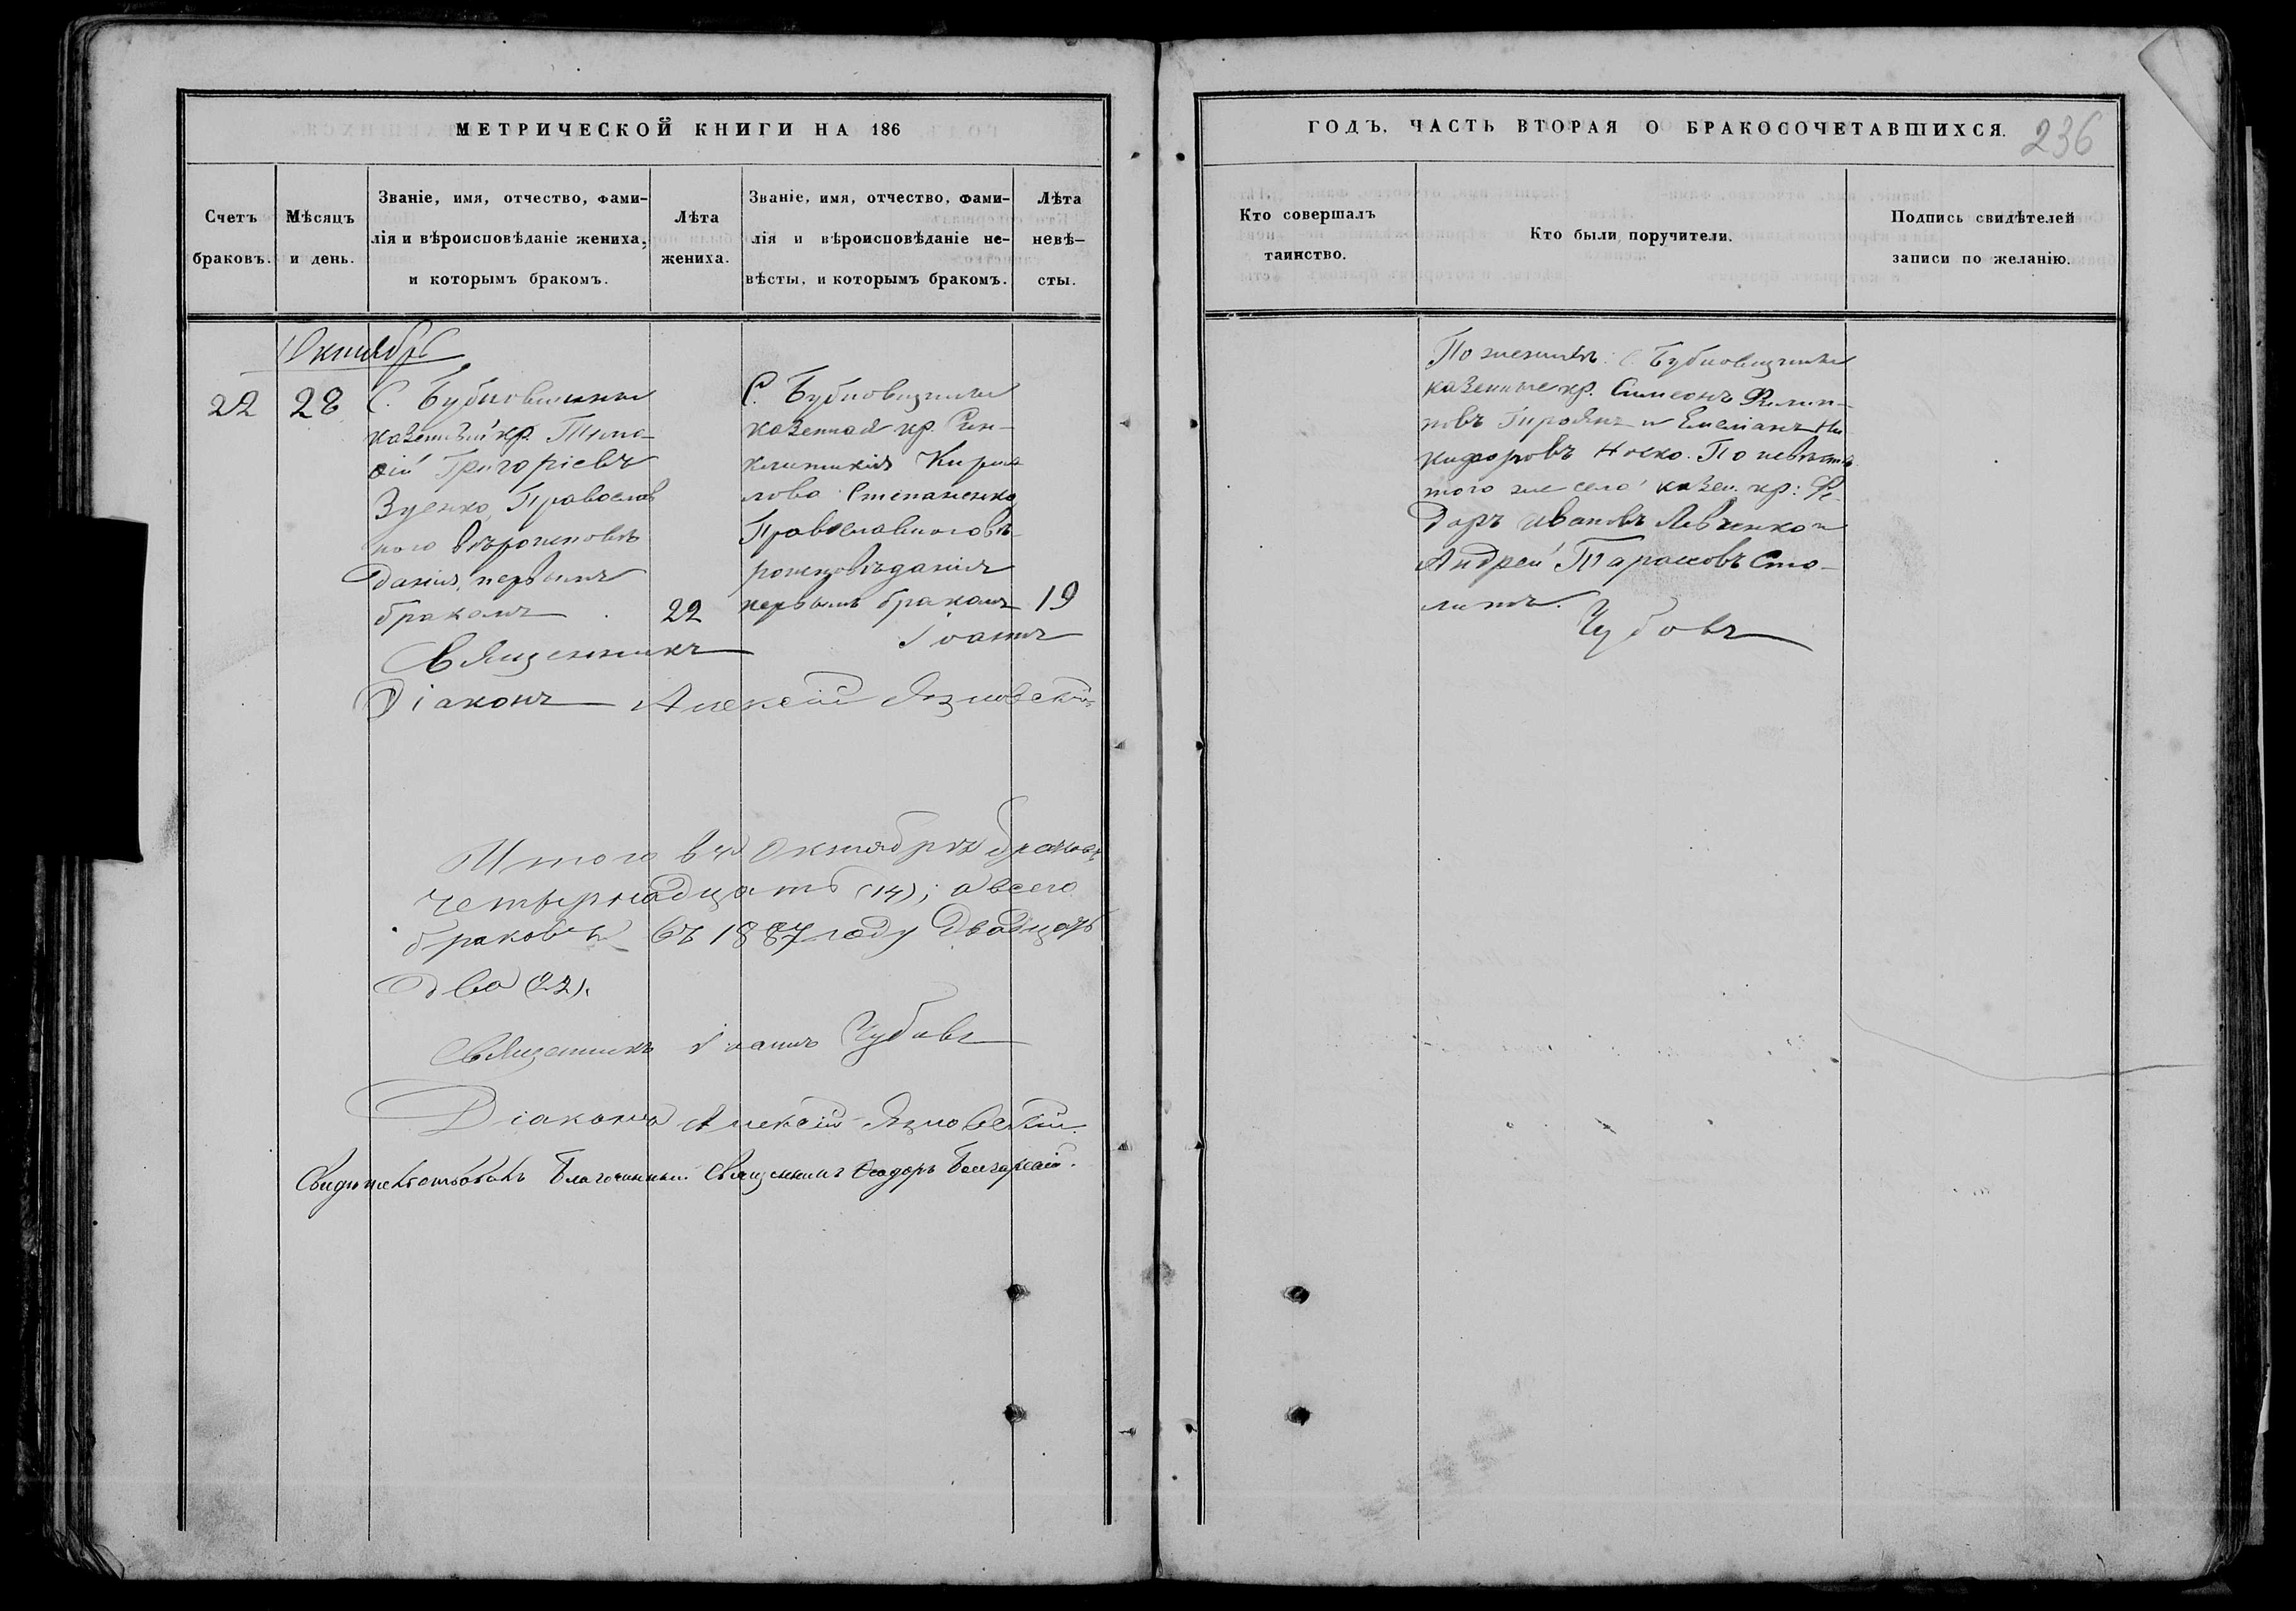 МЕТРИЧЕСКОЙ КНИГИ НА 186
Счетъ браковъ.
Мѣсяцъ и день.
Званіе, имя, отчество, фами-
лія и вѣроисповѣданіе жениха,
и которымъ бракомъ.
Лѣта жениха.
Званіе, имя, отчество, фами-
лія и вѣроисповѣданіе не-
вѣсты, и которымъ бракомъ.
Лѣта невѣ-
сты.
Октябрь
22
28
С. Бубновщины
казенный кр. Тимо-
ѳій Григоріевъ
Зуенко, Православ
ного вѣроисповѣ
данія, первымъ
бракомъ
22
С. Бубновщины
казенная кр. Син-
клитикія Кирил
лова Степаненко
Православного вѣ-
роисповѣданія
первымъ бракомъ
19
Священникъ Іоаннъ
Діаконъ Алексій
Итого въ Октябрѣ браковъ
четырнадцать (14); а всего
браковъ въ 1867 году двадцать
два (22).
Священникъ Іоаннъ Чубовъ
Діаконъ Алексій
Свидѣтельствовалъ Благочинный Священникъ Ѳеодоръ
ГОДЪ, ЧАСТЬ ВТОРАЯ О БРАКОСОЧЕТАВШИХСЯ.
236
Кто совершалъ
таинство.
Кто были поручители.
Подпись свидѣтелей
записи по желанію.
По женихѣ: С. Бубновщины
казенные кр. Симеонъ Филип-
повъ и Емеліанъ Ни
кифоровъ Носко. По невѣстѣ
того же села казен. кр: Ѳе-
доръ Ивановъ Левченко и
Андрей Тарасовъ
Чубовъ